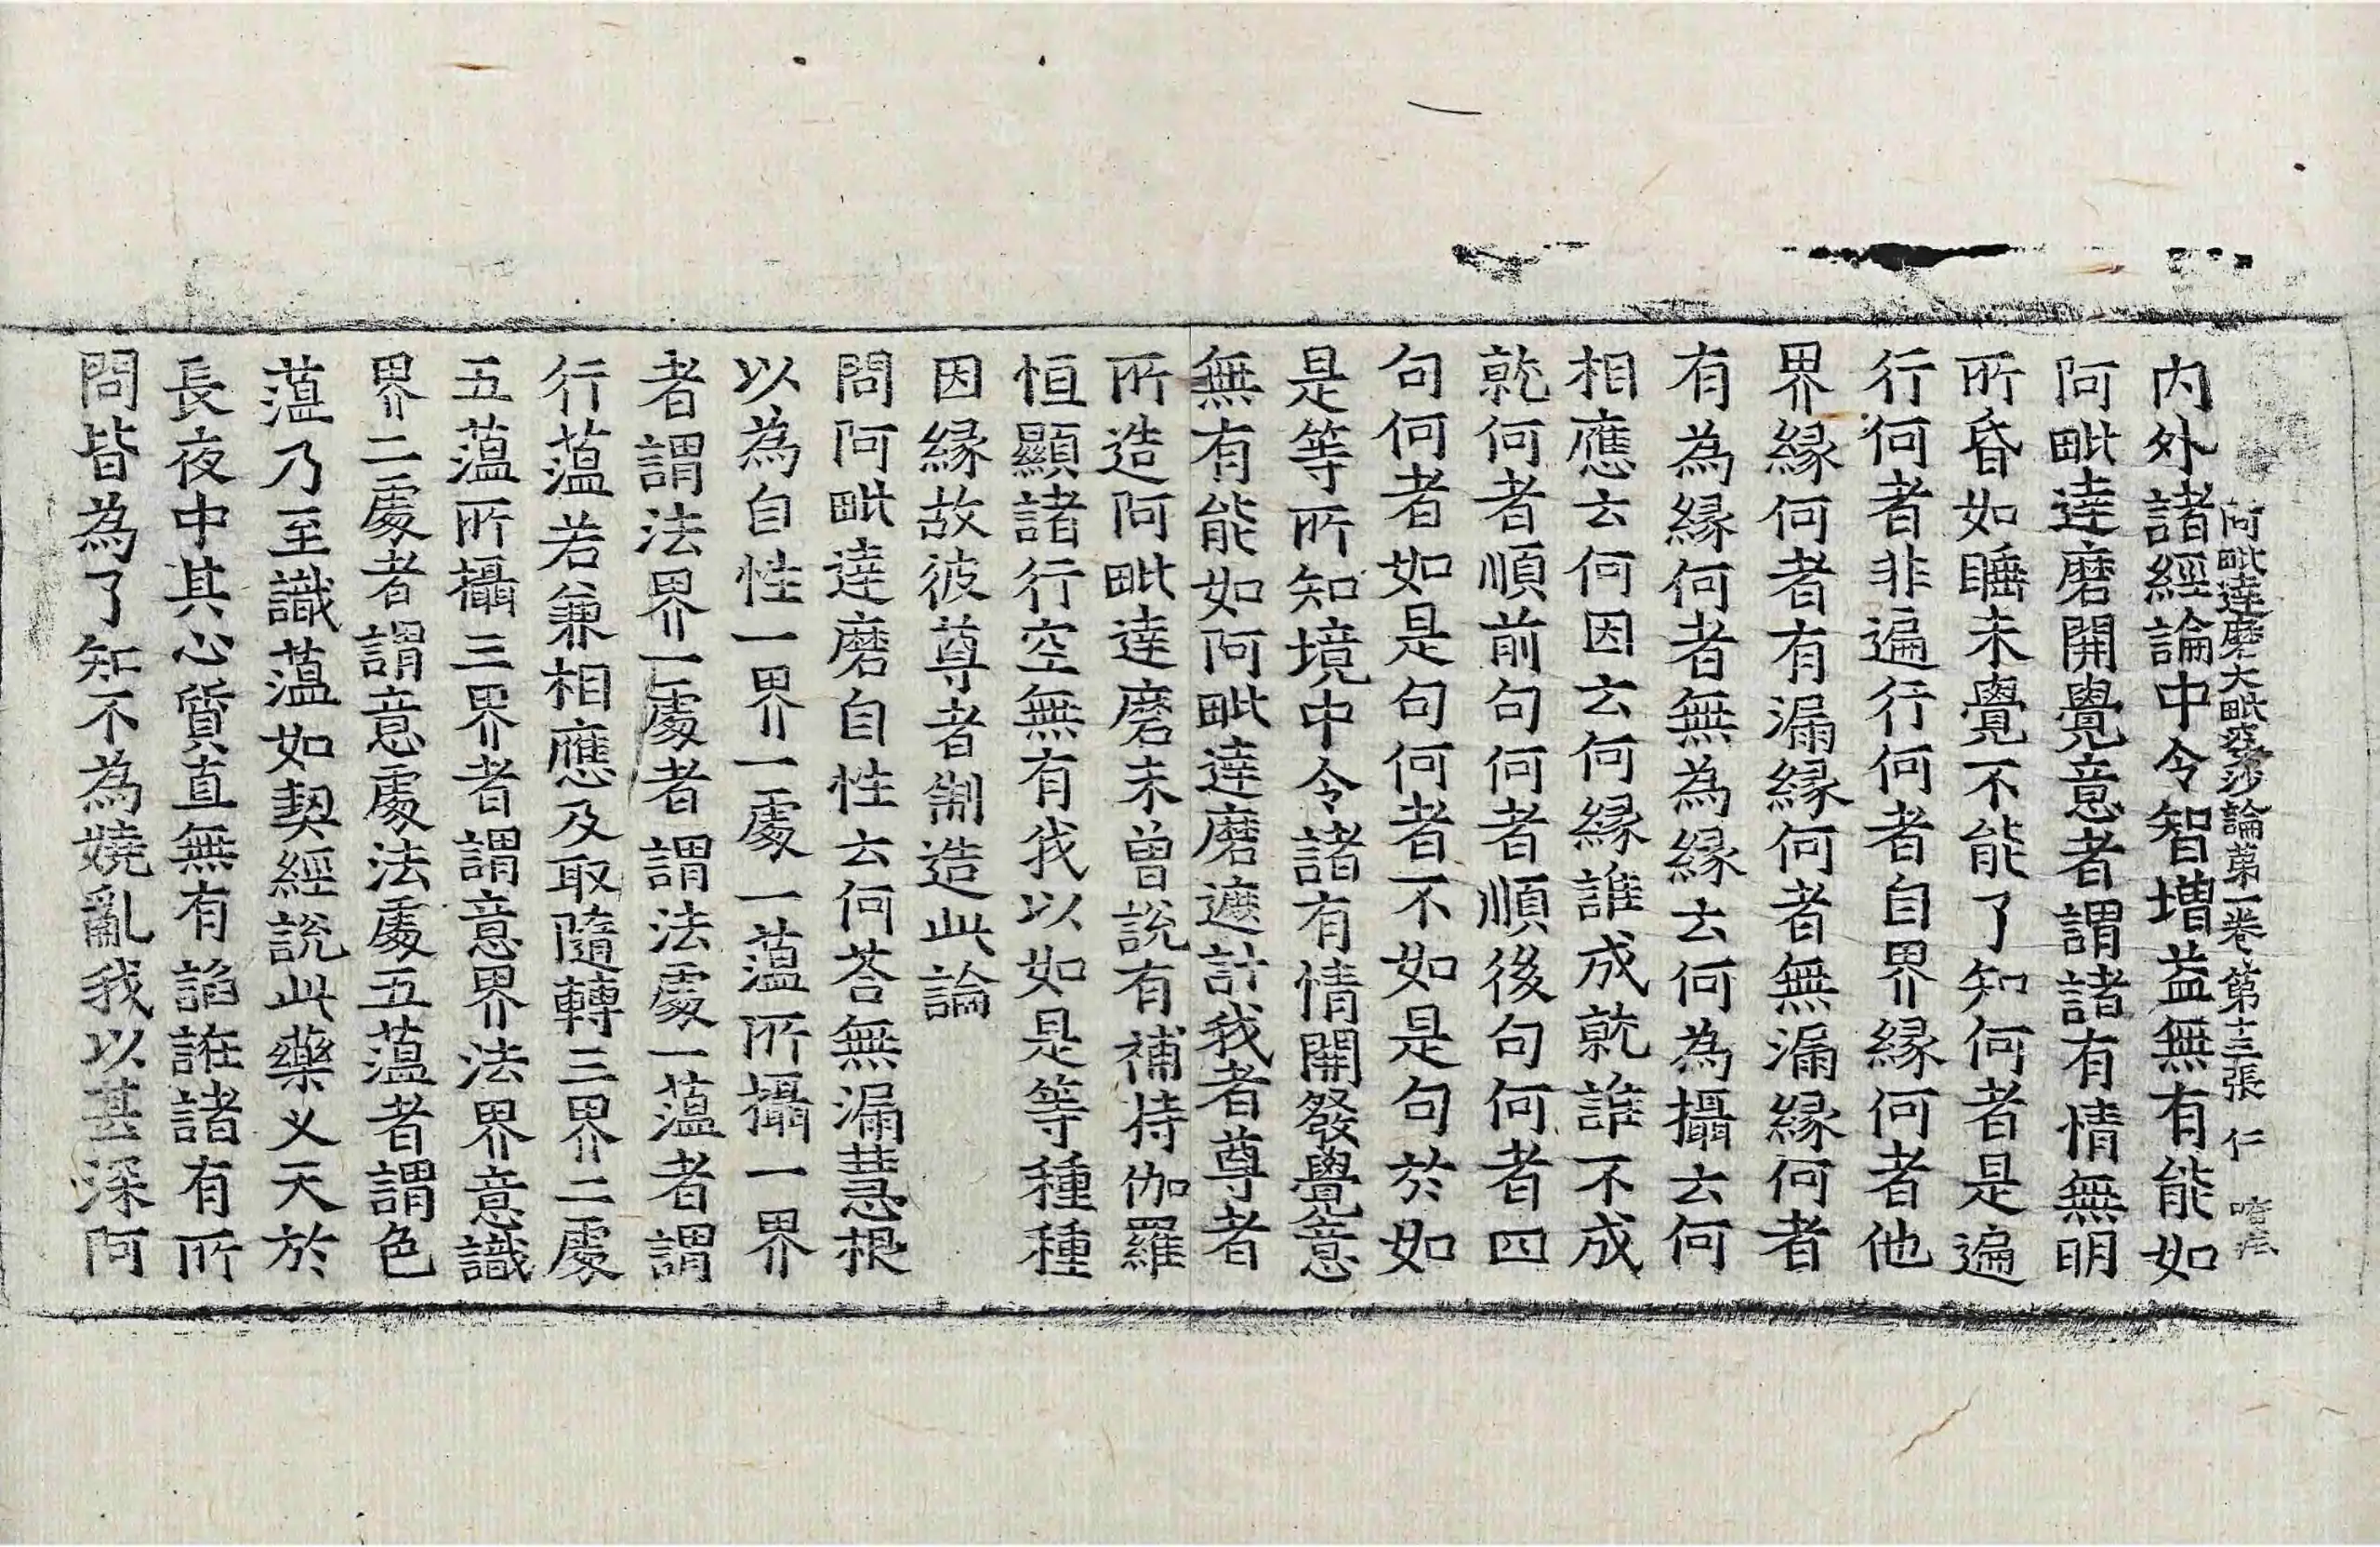 阿毗達磨大毗婆沙論第一卷 第十三張 仁
内外諸經論中令智增益無有能如
阿毗達磨開覺意者謂諸有情無明
所昏如睡未覺不能了知何者是遍
行何者非遍行何者自界縁何者他
界縁何者有漏縁何者無漏縁何者
有為縁何者無為縁云何為攝云何
相應云何因云何縁誰成就誰不成
就何者順前句何者順後句何者四
句何者如是句何者不如是句於如
是等所知境中令諸有情開發覺意
無有能如阿毗達磨遮計我者尊者
所造阿毗達磨未曾說有補特伽羅
恒顯諸行空無有我以如是等種種
因縁故彼尊者制造此論
問阿毗達磨自性云何荅無漏慧根
以為自性一界一處一蘊所攝一界
者謂法界一處者謂法處一蘊者謂
行蘊若兼相應及取隨轉三界二處
五蘊所攝三界者謂意界法界意識
界二處者謂意處法處五蘊者謂色
蘊乃至識蘊如契經說此藥叉天於
長夜中其心質直無有諂誑諸有所
問皆為了知不為嬈亂我以甚深阿